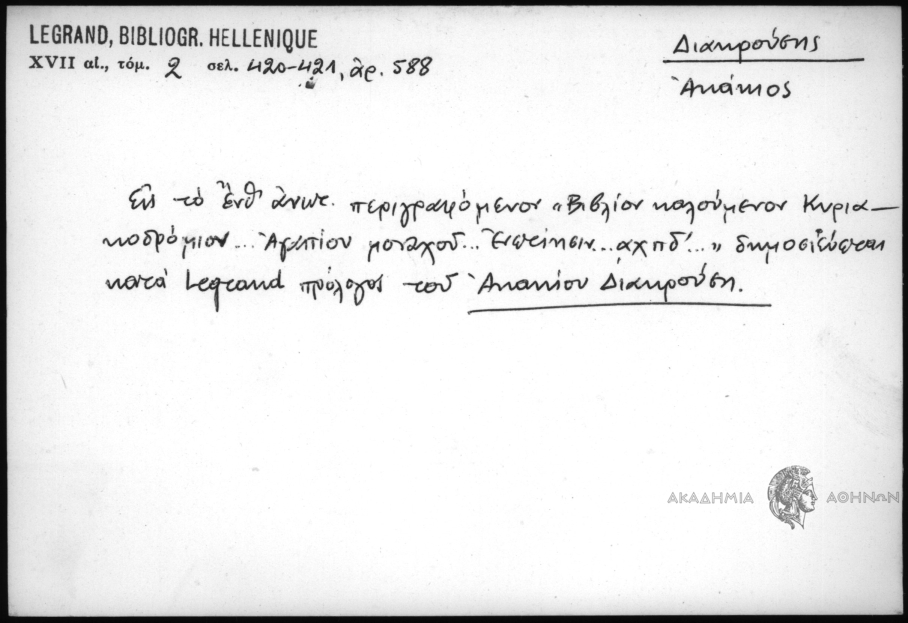 LEGRAND, BIBLIOGR. HELLENIQUE
XVII αἰ., τόμ. 2 σελ. 420-421, ἀρ. 588
Διακρούσης
Ἀκάκιος
Εἰς τὸ ἔνθ' ἄνωτ. περιγραφόμενον "Βιβλίον καλούμενον Κυρια-
κοδρόμιον... Ἀγαπίου μοναχοῦ... Ἐνετίησιν... αχπδ'..." δημοσιεύεται
κατὰ Legrand πρόλογος τοῦ Ἀκακίου Διακρούση.
ΑΚΑΔΗΜΙΑ ΑΘΗΝΩΝ